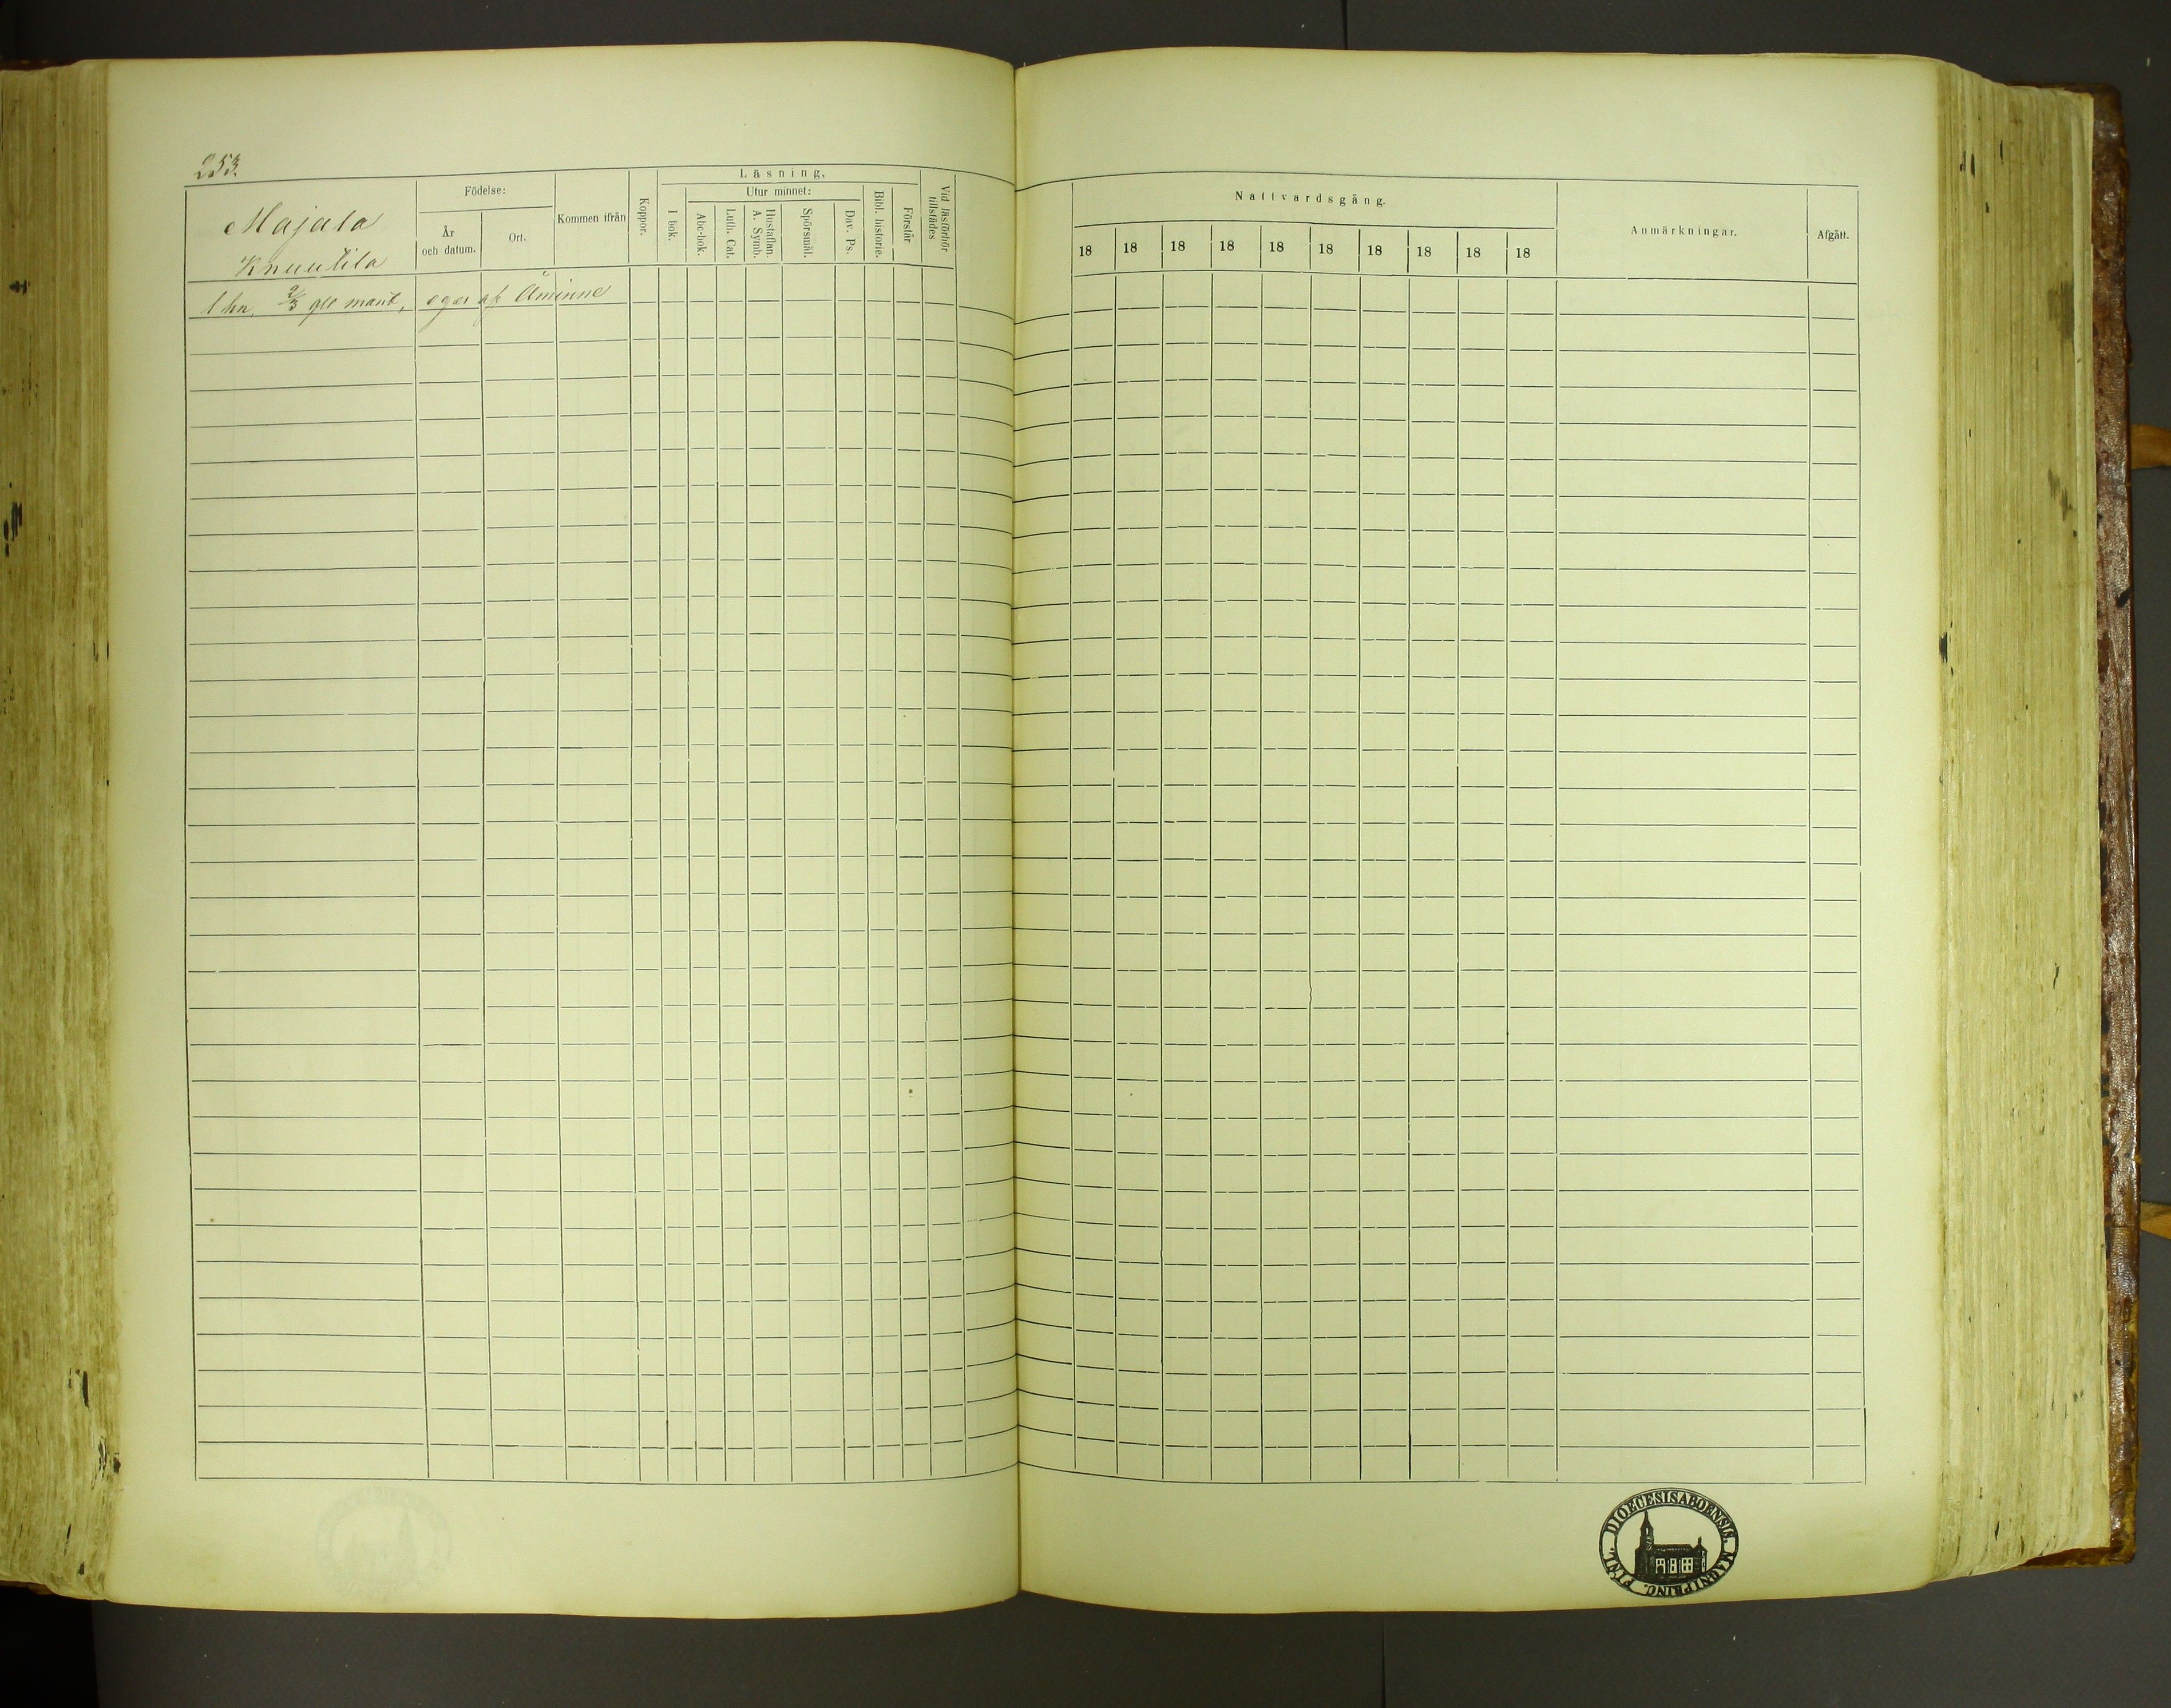 253.
Majala
Knuutila
1 hn, 2/3 gle mant, eges af Åminne
Födelse:
År
och datum.
Ort.
Kommen ifrån
Koppor.
Läsning.
I bok.
Utur minnet:
Abc-bok.
Luth. Cat.
Hustaflan.
A. Symb.
Spörsmål.
Dav. Ps.
Bibl. historie.
Förstår
Vid läsförhör
tillstädes
Nattvardsgång.
18 18 18 18 18 18 18 18 18 18
Anmärkningar.
Afgått.
DIOECESIS ABOENSIS. MAGNI PRINC. FINL.